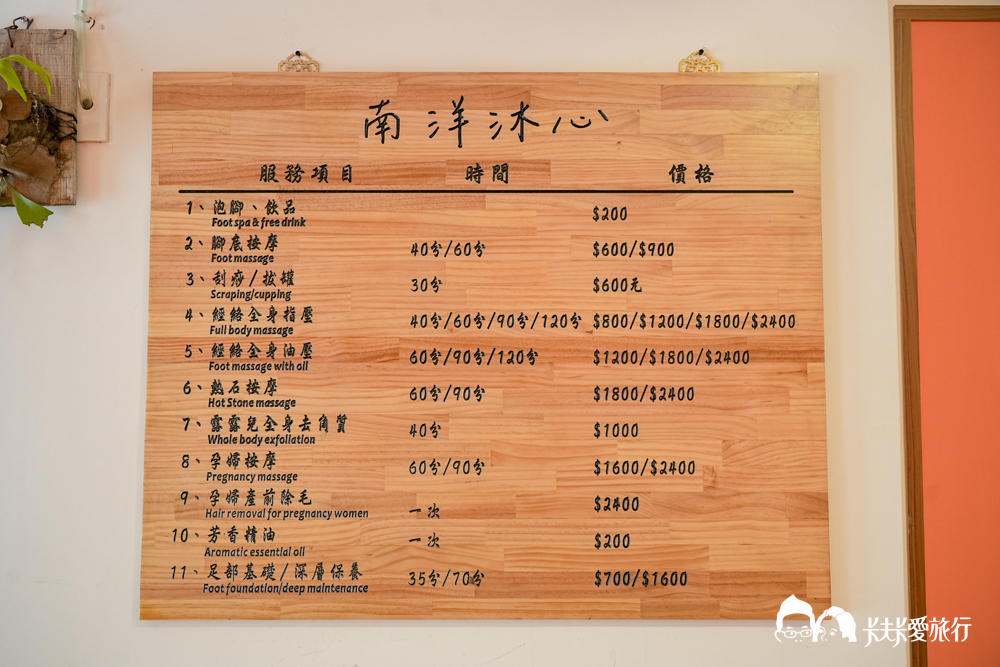 南洋沐心
服務項目 時間 價格
1、泡腳、飲品 $200
Foot spa & free drink
2、腳底按摩 40分/60分 $600/$900
Foot massage
3、刮痧/拔罐 30分 $600元
Scraping/cupping
4、經絡全身指壓 40分/60分/90分/120分 $800/$1200/$1800/$2400
Full body massage
5、經絡全身油壓 60分/90分/120分 $1200/$1800/$2400
Foot massage with oil
6、熱石按摩 60分/90分 $1800/$2400
Hot Stone massage
7、露露兒全身去角質 40分 $1000
Whole body exfoliation
8、孕婦按摩 60分/90分 $1600/$2400
Pregnancy massage
9、孕婦產前除毛 一次 $2400
Hair removal for pregnancy women
10、芳香精油 一次 $200
Aromatic essential oil
11、足部基礎/深層保養 35分/70分 $700/$1600
Foot foundation/deep maintenance
卡夫卡愛旅行